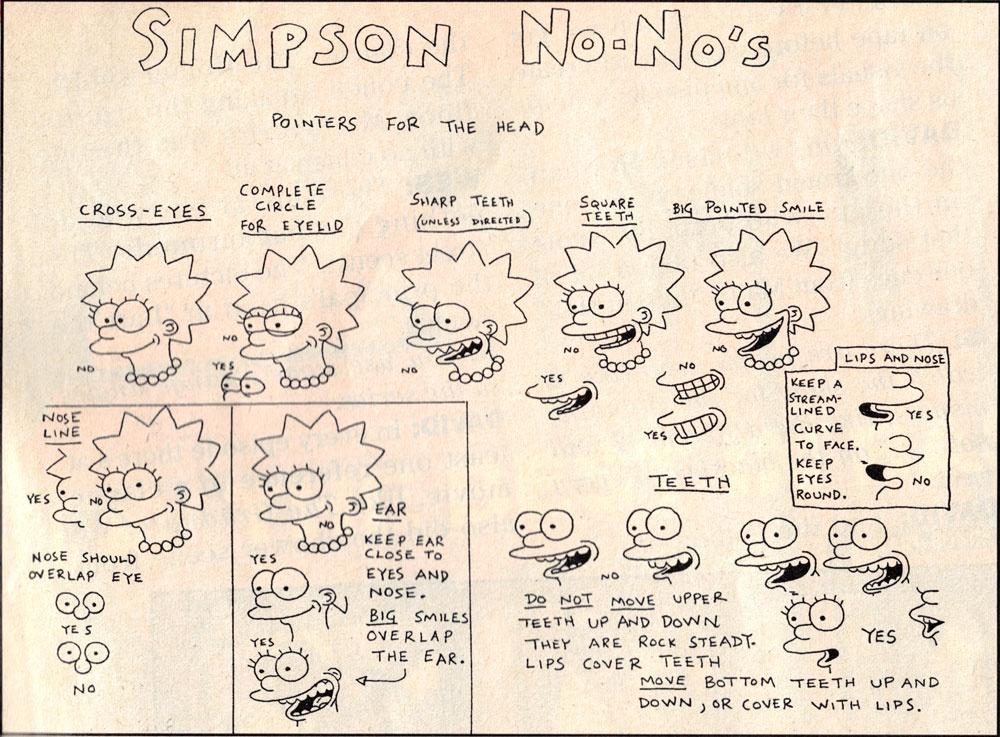 SIMPSON NO-NO'S
POINTERS FOR THE HEAD
CROSS-EYES
NO
COMPLETE
CIRCLE
FOR EYELID
NO
YES
SHARP TEETH
(UNLESS DIRECTED)
NO
SQUARE
TEETH
NO
YES
BIG POINTED SMILE
NO
NO
YES
TEETH
LIPS AND NOSE
KEEP A
STREAM-
LINED
CURVE
TO FACE.
KEEP
EYES
ROUND.
YES
NO
NOSE
LINE
YES
NO
NOSE SHOULD
OVERLAP EYE
YES
NO
NO
EAR
KEEP EAR
CLOSE TO
EYES AND
NOSE.
BIG SMILES
OVERLAP
THE EAR.
YES
YES
NO
DO NOT MOVE UPPER
TEETH UP AND DOWN
THEY ARE ROCK STEADY.
LIPS COVER TEETH
YES
MOVE BOTTOM TEETH UP AND
DOWN, OR COVER WITH LIPS.